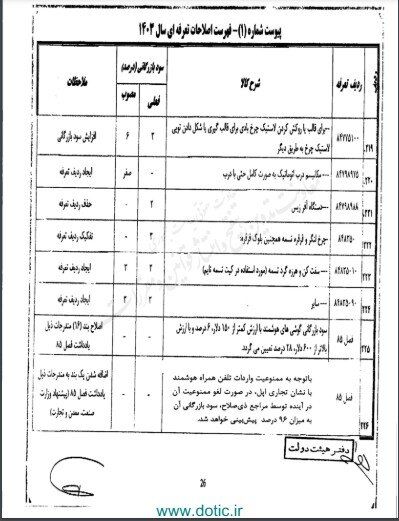 پیوست شماره (۱) - فهرست اصلاحات تعرفه ای سال ۱۴۰۳
ردیف تعرفه
شرح کالا
سود بازرگانی (درصد)
فعلی
مصوب
ملاحظات
۲۱۹
۸۴۷۷۵۱۰۰
---برای قالب یا روکش کردن لاستیک چرخ بادی برای قالب گیری یا شکل دادن تویی
لاستیک چرخ به طریق دیگر
۲
۶
افزایش سود بازرگانی
۲۲۰
۸۴۷۹۸۹۷۵
---مکانیسم درب اتوماتیک به صورت کامل حتی با درب
-
صفر
ایجاد ردیف تعرفه
۲۲۱
۸۴۷۹۸۹۸۸
---دستگاه آفر ریس
۲
۰
حذف ردیف تعرفه
۲۲۲
۸۴۸۳۵۰
چرخ لنگر و قرقره تسمه همچنین بلوک قرقره:
۰
تفکیک ردیف تعرفه
۲۲۳
۸۴۸۳۵۰۱۰
---سفت کن و هرزه گرد تسمه (مورد استفاده در کیت تسمه تایم)
۲
۲
ایجاد ردیف تعرفه
۲۲۴
۸۴۸۳۵۰۹۰
--- سایر
۲
۲
ایجاد ردیف تعرفه
۲۲۵
فصل ۸۵
سود بازرگانی گوشی های هوشمند با ارزش کمتر از ۱۵۰ دلار، ۶ درصد و با ارزش
بالاتر از ۶۰۰ دلار، ۲۸ درصد تعیین می گردد.
-
-
اصلاح بند (۱۶) مندرجات ذیل
یادداشت فصل ۸۵
۲۲۶
فصل ۸۵
باتوجه به ممنوعیت واردات تلفن همراه هوشمند
با نشان تجاری اپل، در صورت لغو ممنوعیت آن
در آینده توسط مراجع ذی‌صلاح، سود بازرگانی آن
به میزان ۹۶ درصد پیش‌بینی خواهد شد.
-
-
اضافه شدن یک بند به مندرجات ذیل
یادداشت فصل ۸۵ (پیشنهاد وزارت
صنعت، معدن و تجارت)
دفتر هیئت دولت
26
www.dotic.ir